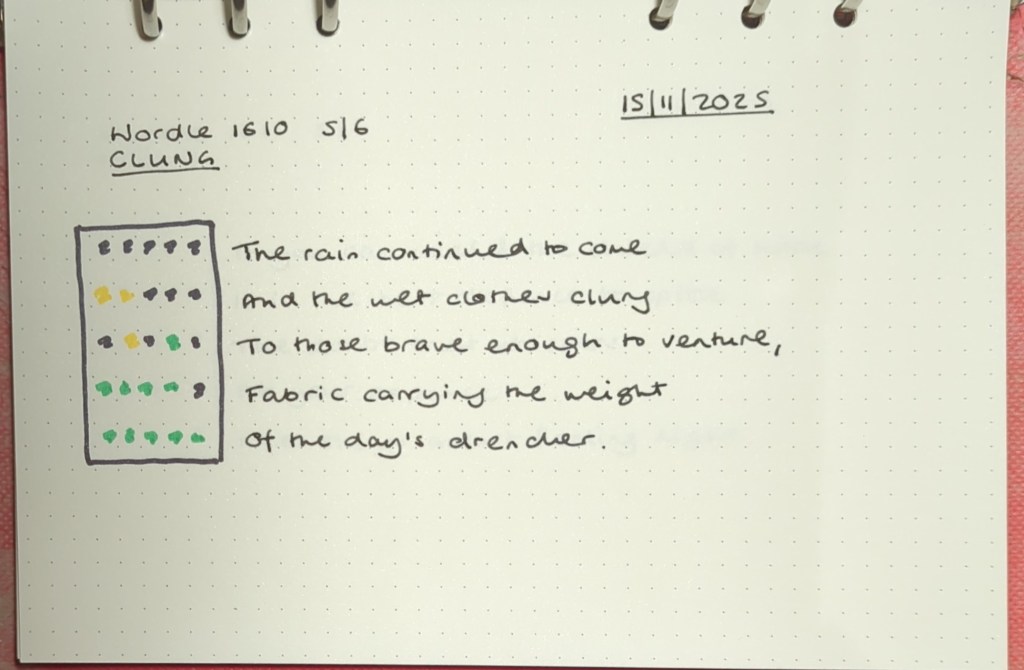 15/11/2025
Wordle 1610 5/6
CLUNG
The rain continued to come
And the wet clothes clung
To those brave enough to venture,
Fabric carrying the weight
Of the day's drencher.